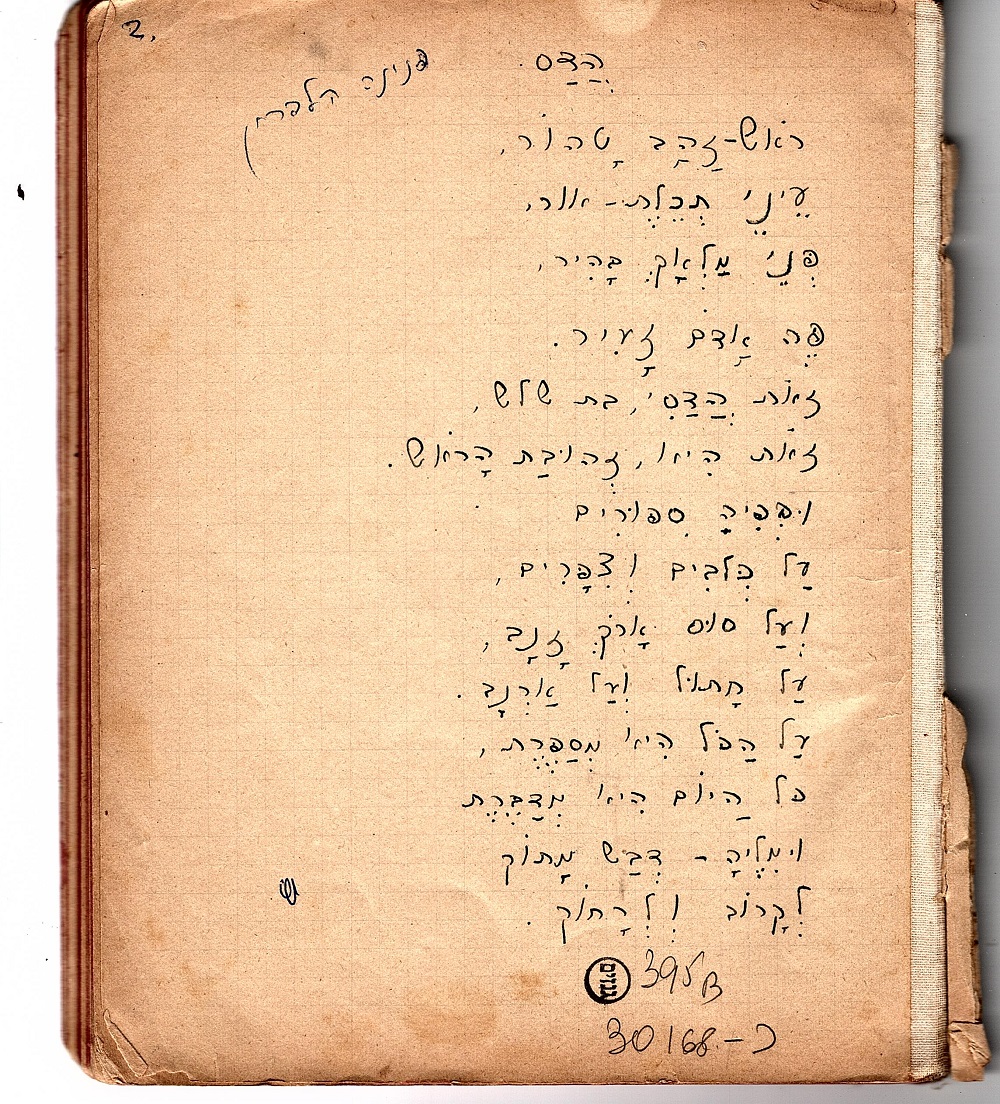 2.
הֲדַס
פנינה הלפרין
רֹאש-זָהָב טָהוֹר,
עֵינֵי תְכֵלֶת-אור,
פְּנֵי מַלְאָךְ בָּהִיר,
פֶּה אָדֹם זָעִיר.
זֹאת הֲדַסִי, בת שלש,
זֹאת הִיא, זְהוּבַת הָרֹאש.
וּבְּפִיהָ סִפּוּרִים
עַל כְּלָבִים וְצִפֳּרִים,
וְעַל סוּס אָרֹךְ זָנָב,
עַל חָתוּל וְעַל אַרְנָב.
עַל הַכֹּל הִיא מְסַפֶּרֶת,
כל הַיוֹם הִיא מְדַבֶּרֶת
וּמִלֶּיהָ - דְּבַש מָתוֹק
לְקָרוֹב וְלְרָחוֹק.
גנזים
395 B
כ-30168